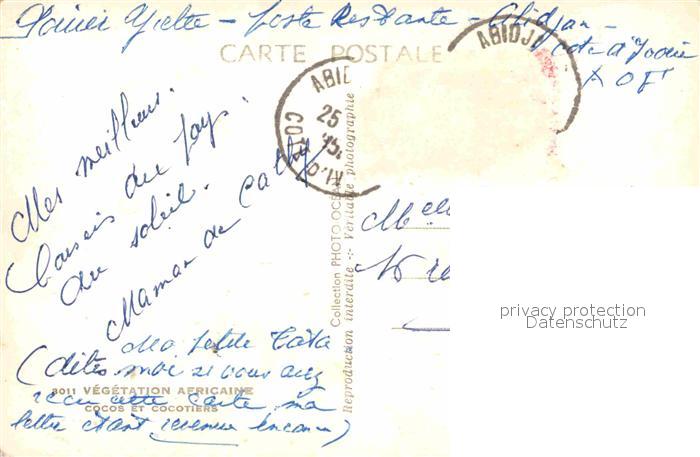 Yvette - Poste Restante - Abidjan -
Cote d'Ivoire
A O F
CARTE POSTALE
ABIDJ
ABID
25
COTE
Mes meilleurs
baisers du pays
du soleil.
Maman de Cathy
Collection PHOTO-OCE
Reproduction interdite -:- Véritable photographie
Melle
privacy protection
Datenschutz
Ma petite Cata
(dites moi si vous avez
8011 VÉGÉTATION AFRICAINE
reçu cette carte, ma
COCOS ET COCOTIERS
lettre étant revenue inconnu)